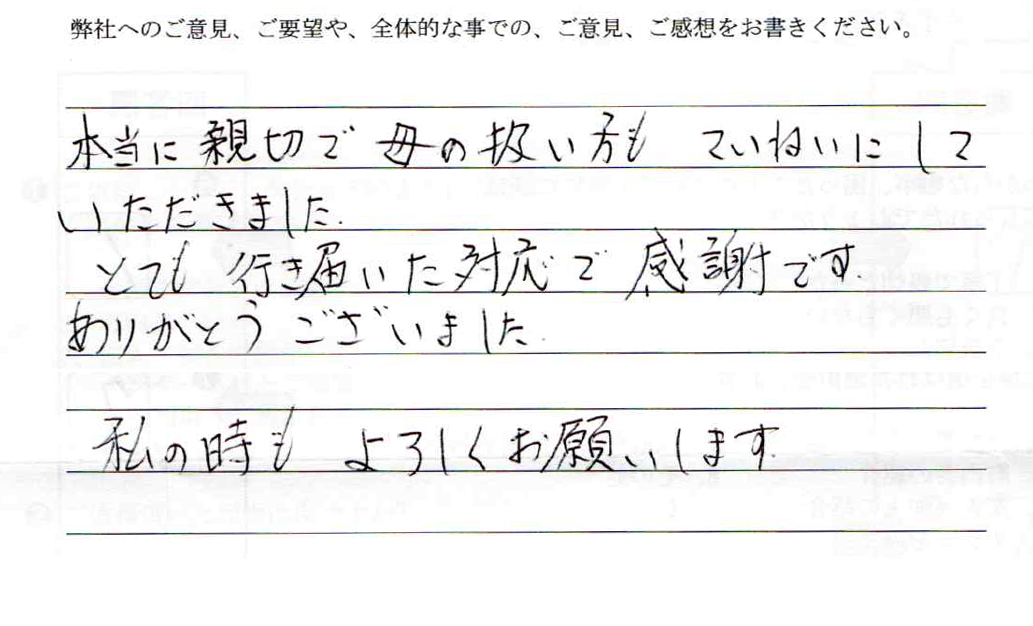 弊社へのご意見、ご要望や、全体的な事での、ご意見、ご感想をお書きください。
本当に親切で母の扱い方も ていねいにして
いただきました.
とても行き届いた対応で感謝です.
ありがとうございました.
私の時も よろしくお願いします.